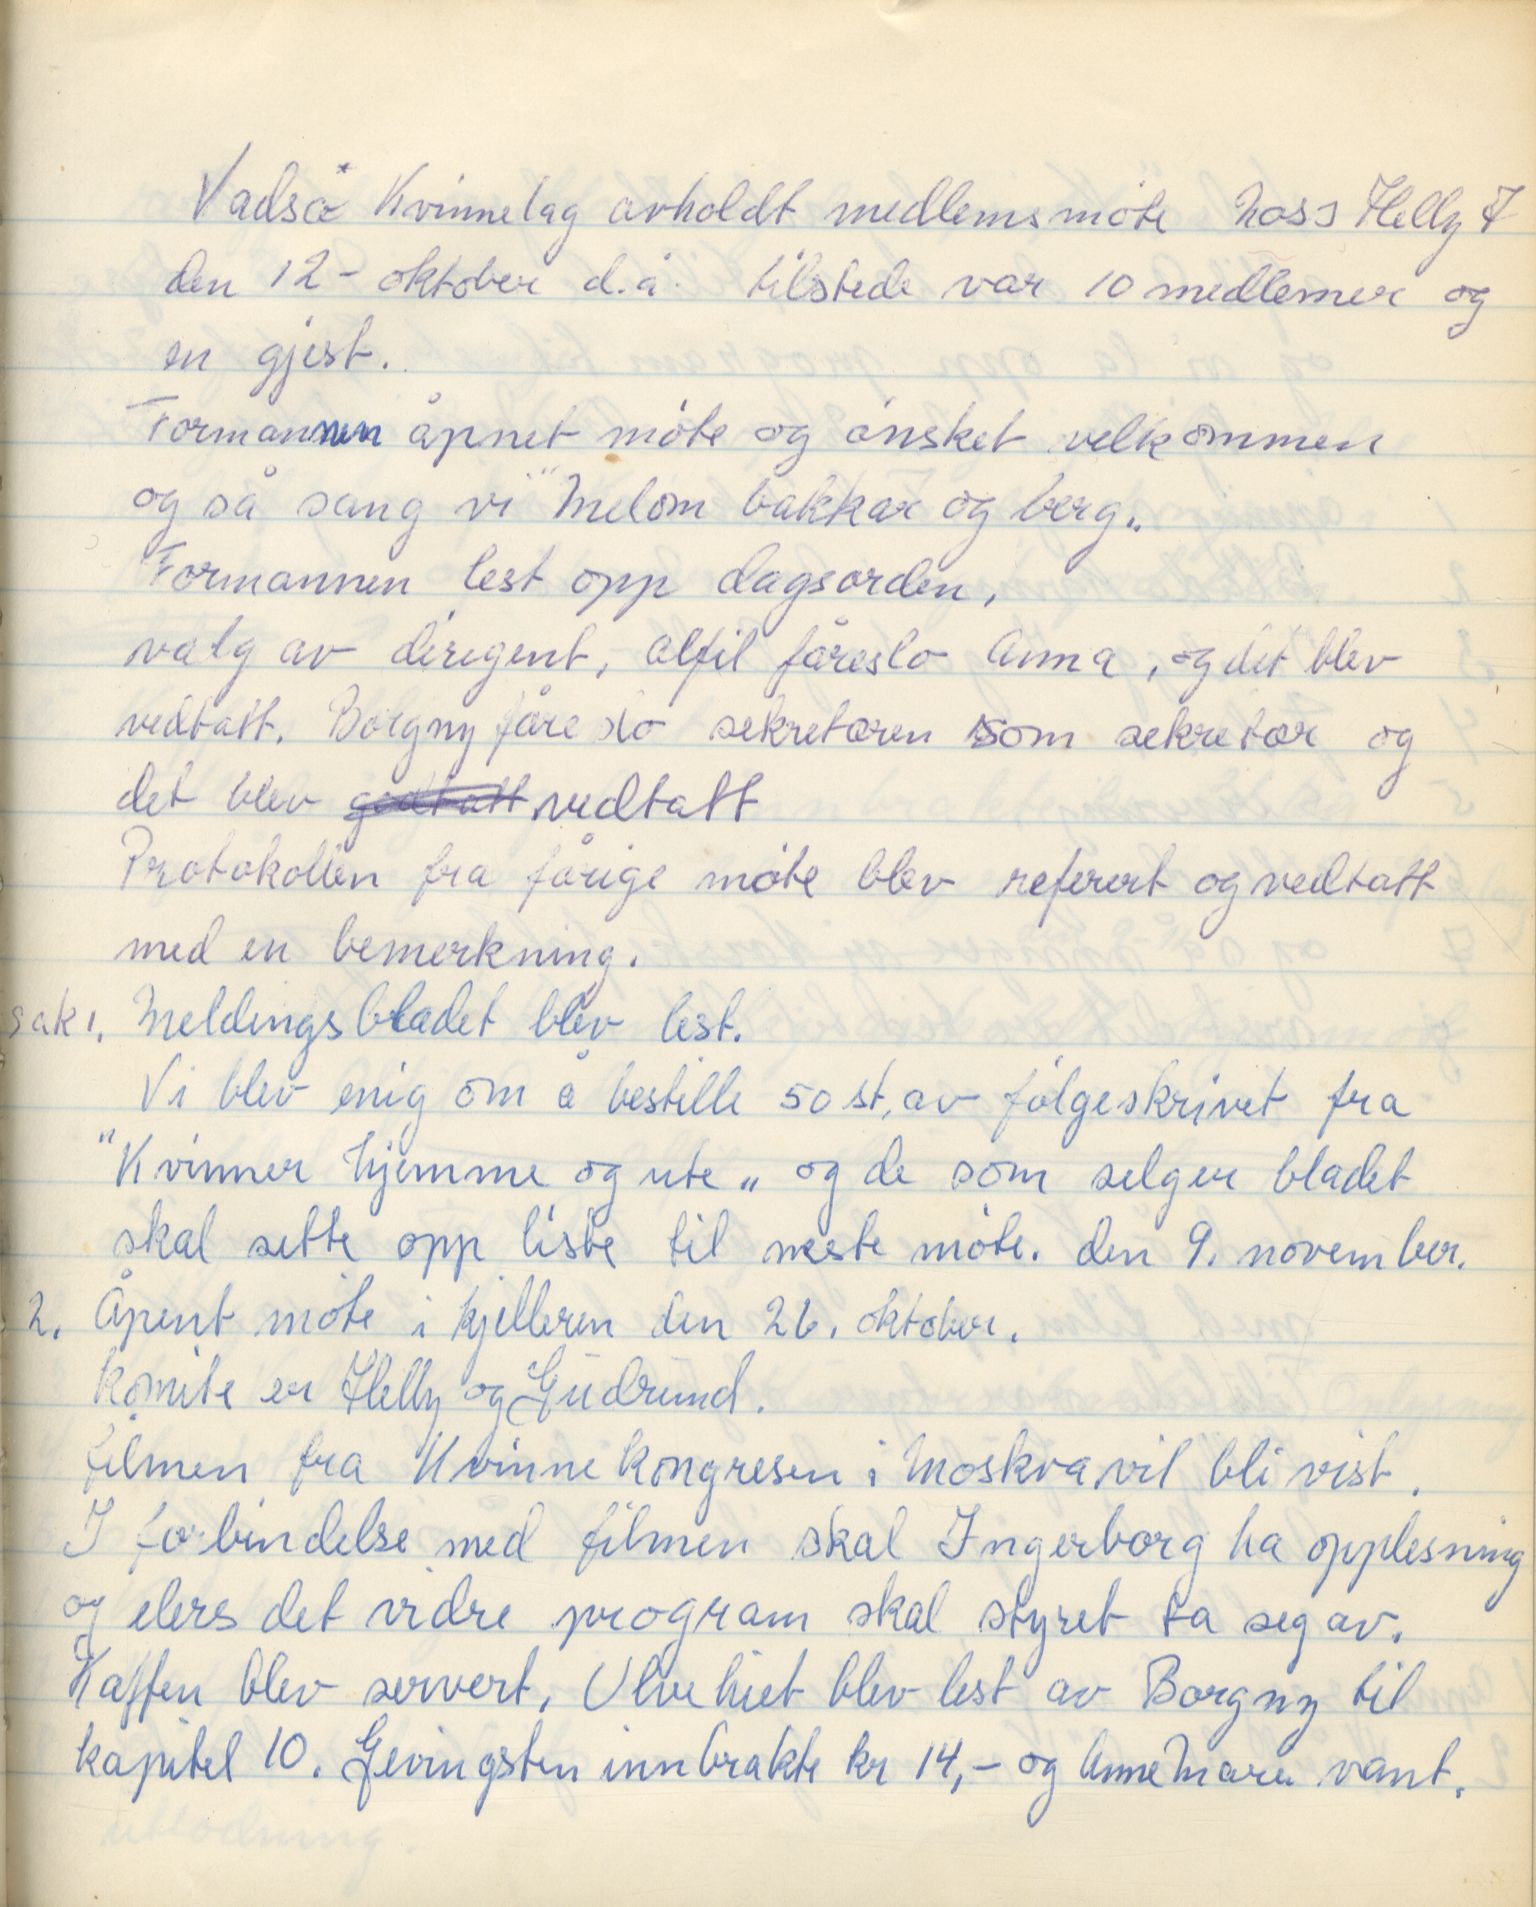 Vadsö Kvinnelag avholdt medlemsmöte hoss Helly F
den 12 - oktober d.å. tilstede var 10 medlemer og
en gjest.
Formannen åpnet möte og önsket velkommen
og så sang vi "Melom bakkar og berg"
Formannen lest opp dagsorden,
valg av dirigent, alfil föreslo Anna, og det blev
vedtatt. Borgny föreslo sekretæren som sekretær og
det blev godtatt vedtatt
Protokollen fra förige möte blev referert og vedtatt
med en bemerkning.
sak 1. Meldingsbladet blev lest.
Vi blev enig om å bestille 50 st. av fölgeskrivet fra
"Kvinner hjemme og ute" og de som selger bladet
skal sette opp liste til neste möte. den 9. november.
2. Åpent möte i kjelleren den 26. oktober.
komite er Helly og Gudrund.
filmen fra Kvinnekongresen i Moskva vil bli vist.
I forbindelse med filmen skal Ingerborg ha opplesning
og elers det vidre program skal styret ta seg av.
Kaffen blev servert, Ulvehiet blev lest av Borgny til
kapitel 10. Gevingsten innbrakte kr 14,- og Anne Marie vant.